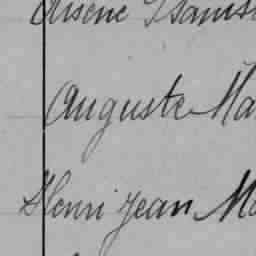 Arsène Stanis
Auguste Ma
Henri Jean Ma